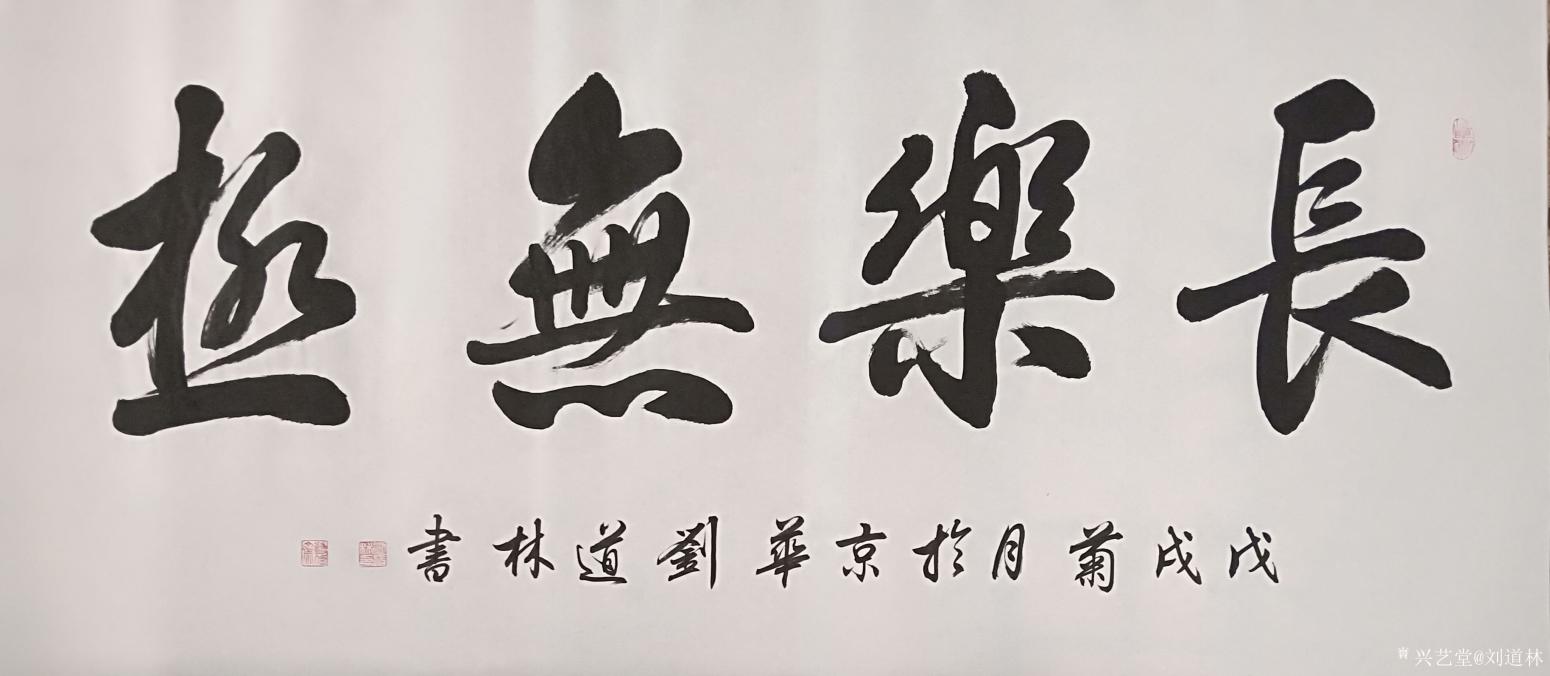 長樂無極
戊戌菊月於京華劉道林書
兴艺堂@刘道林